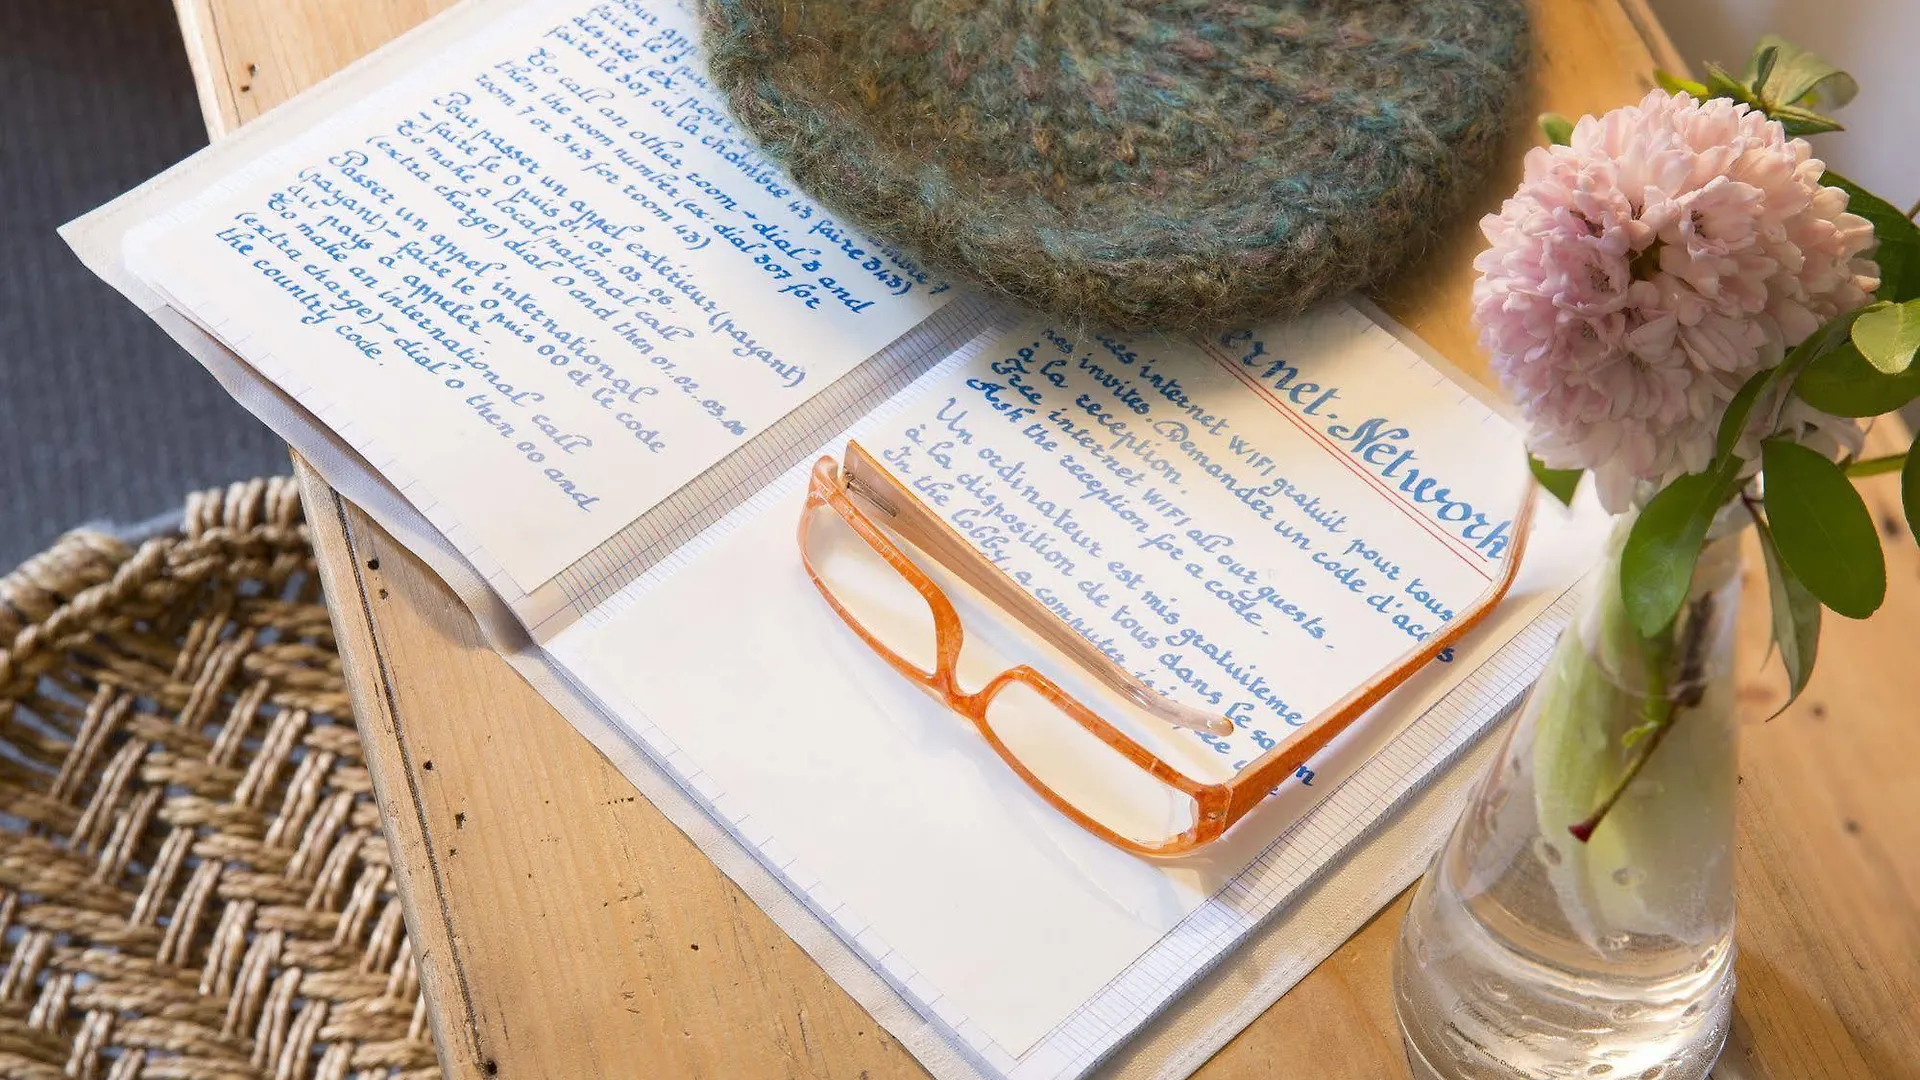 Pour
faire le 3 puis
désirée (ex: pour
faire le 307 ou la chambre 43 faire 343)
To call an other room → dial 3 and
then the room number (ex: dial 307 for
room 7 or 343 for room 43)
Pour passer un appel extérieur (payant)
→ faire le 0 puis 01. 02. 03. 06.
To make a local national call
(extra charge) dial 0 and then 01. 02. 03. 06
Passer un appel international
(payant) → faire le 0 puis 00 et le code
du pays à appeler.
To make an international call
(extra charge) → dial 0 then 00 and
the country code.
ernet-Network
internet WIFI gratuit pour tous
nos invités. Demander un code d'accès
à la réception.
Free internet WIFI all our guests.
Ask the reception for a code.
Un ordinateur est mis gratuiteme
à la disposition de tous dans le sa
In the lobby, a computer